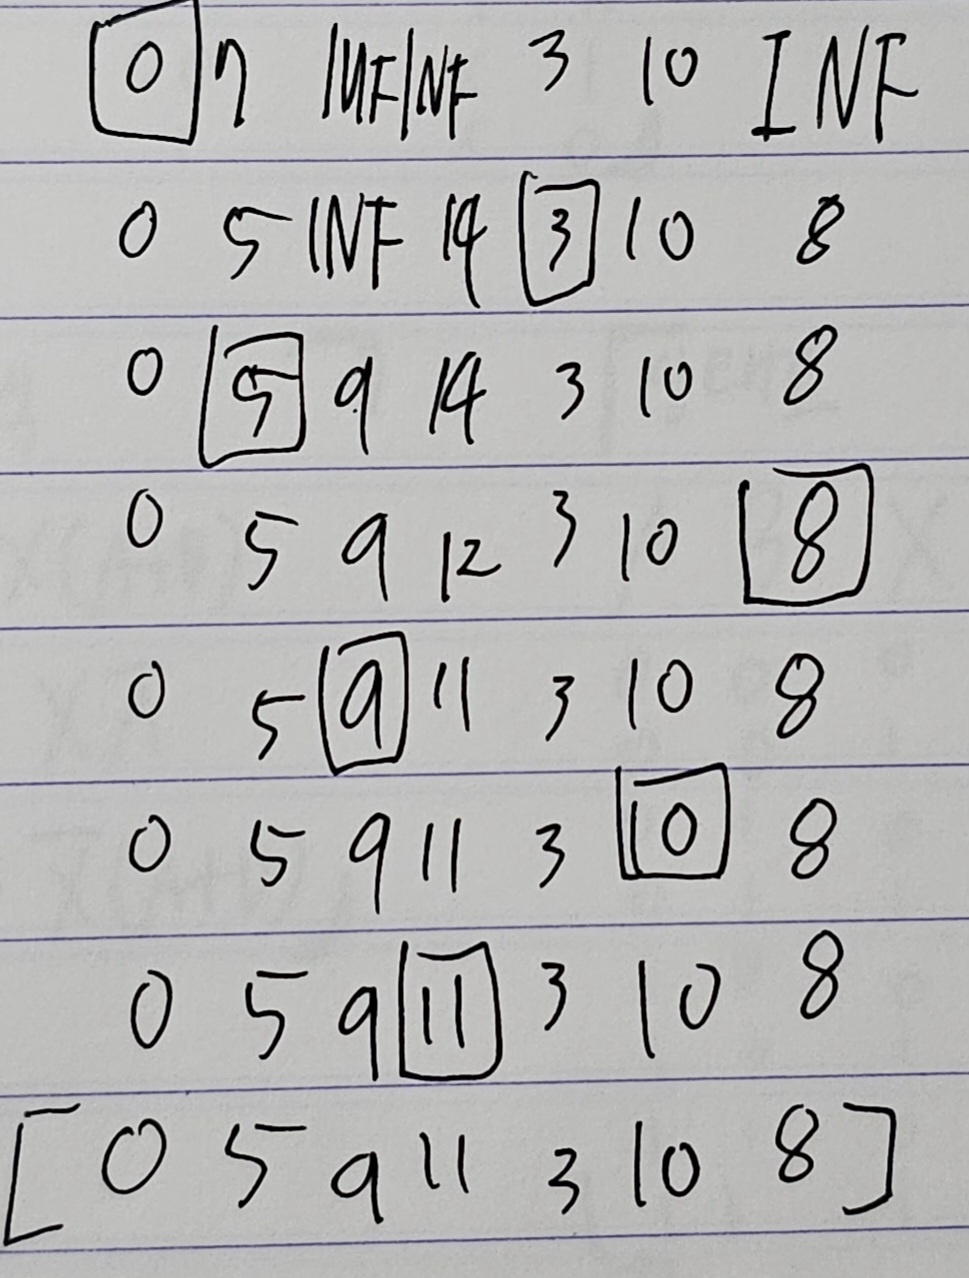 0 7 INF INF 3 10 INF
0 5 INF 14 3 10 8
0 5 9 14 3 10 8
0 5 9 12 3 10 8
0 5 9 11 3 10 8
0 5 9 11 3 10 8
0 5 9 11 3 10 8
[0 5 9 11 3 10 8]